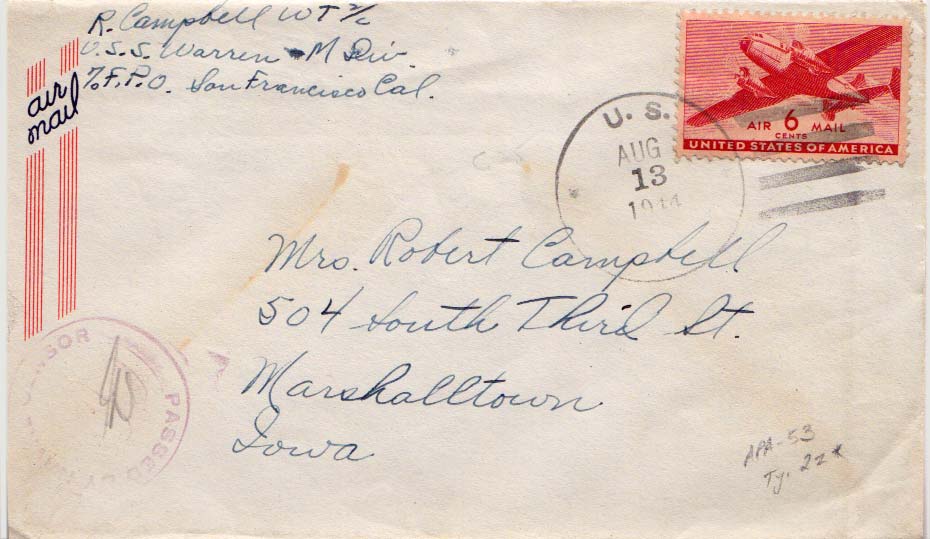 R. Campbell WT 2/c
U.S.S. Warren - M Div.
% F.P.O. San Francisco Cal.
air
mail
AIR 6 MAIL
CENTS
UNITED STATES OF AMERICA
U. S.
AUG
13
1944
Mrs. Robert Campbell
504 South Third St.
Marshalltown
Iowa
PASSED BY
NAVAL CENSOR
APA-53
Ty. 2z *